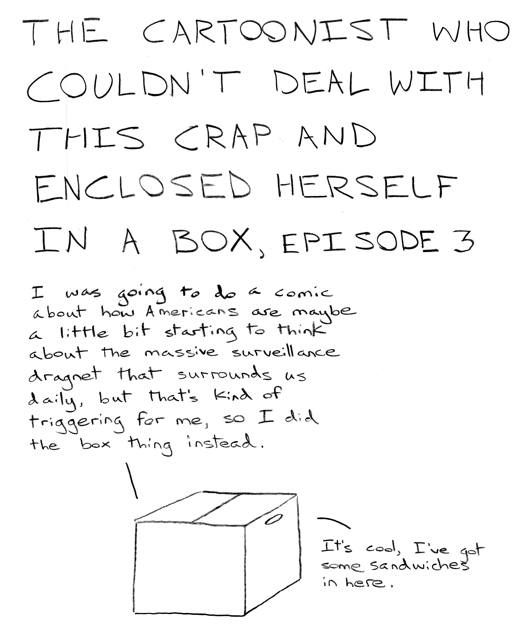 THE CARTOONIST WHO
COULDN'T DEAL WITH
THIS CRAP AND
ENCLOSED HERSELF
IN A BOX, EPISODE 3
I was going to do a comic
about how Americans are maybe
a little bit starting to think
about the massive surveillance
dragnet that surrounds us
daily, but that's kind of
triggering for me, so I did
the box thing instead.
It's cool, I've got
some sandwiches
in here.